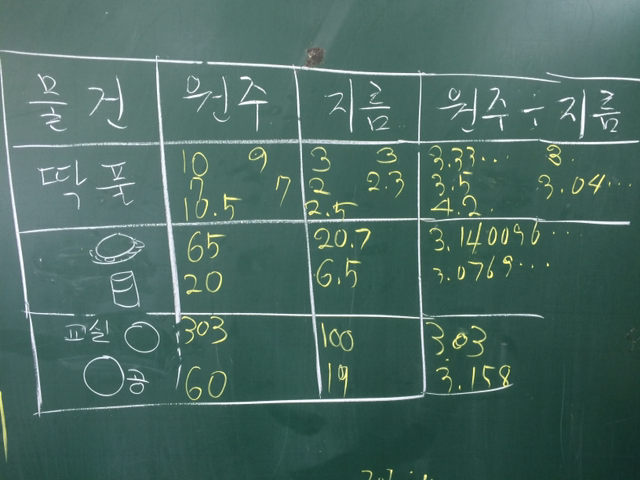 물건 원주 지름 원주÷지름
딱풀 10 9 3 3 3.33... 3.
7 7 2 2.3 3.5 3.04...
10.5 2.5 4.2
65 20.7 3.140096...
20 6.5 3.0769...
교실 303 100 3.03
공 60 19 3.158